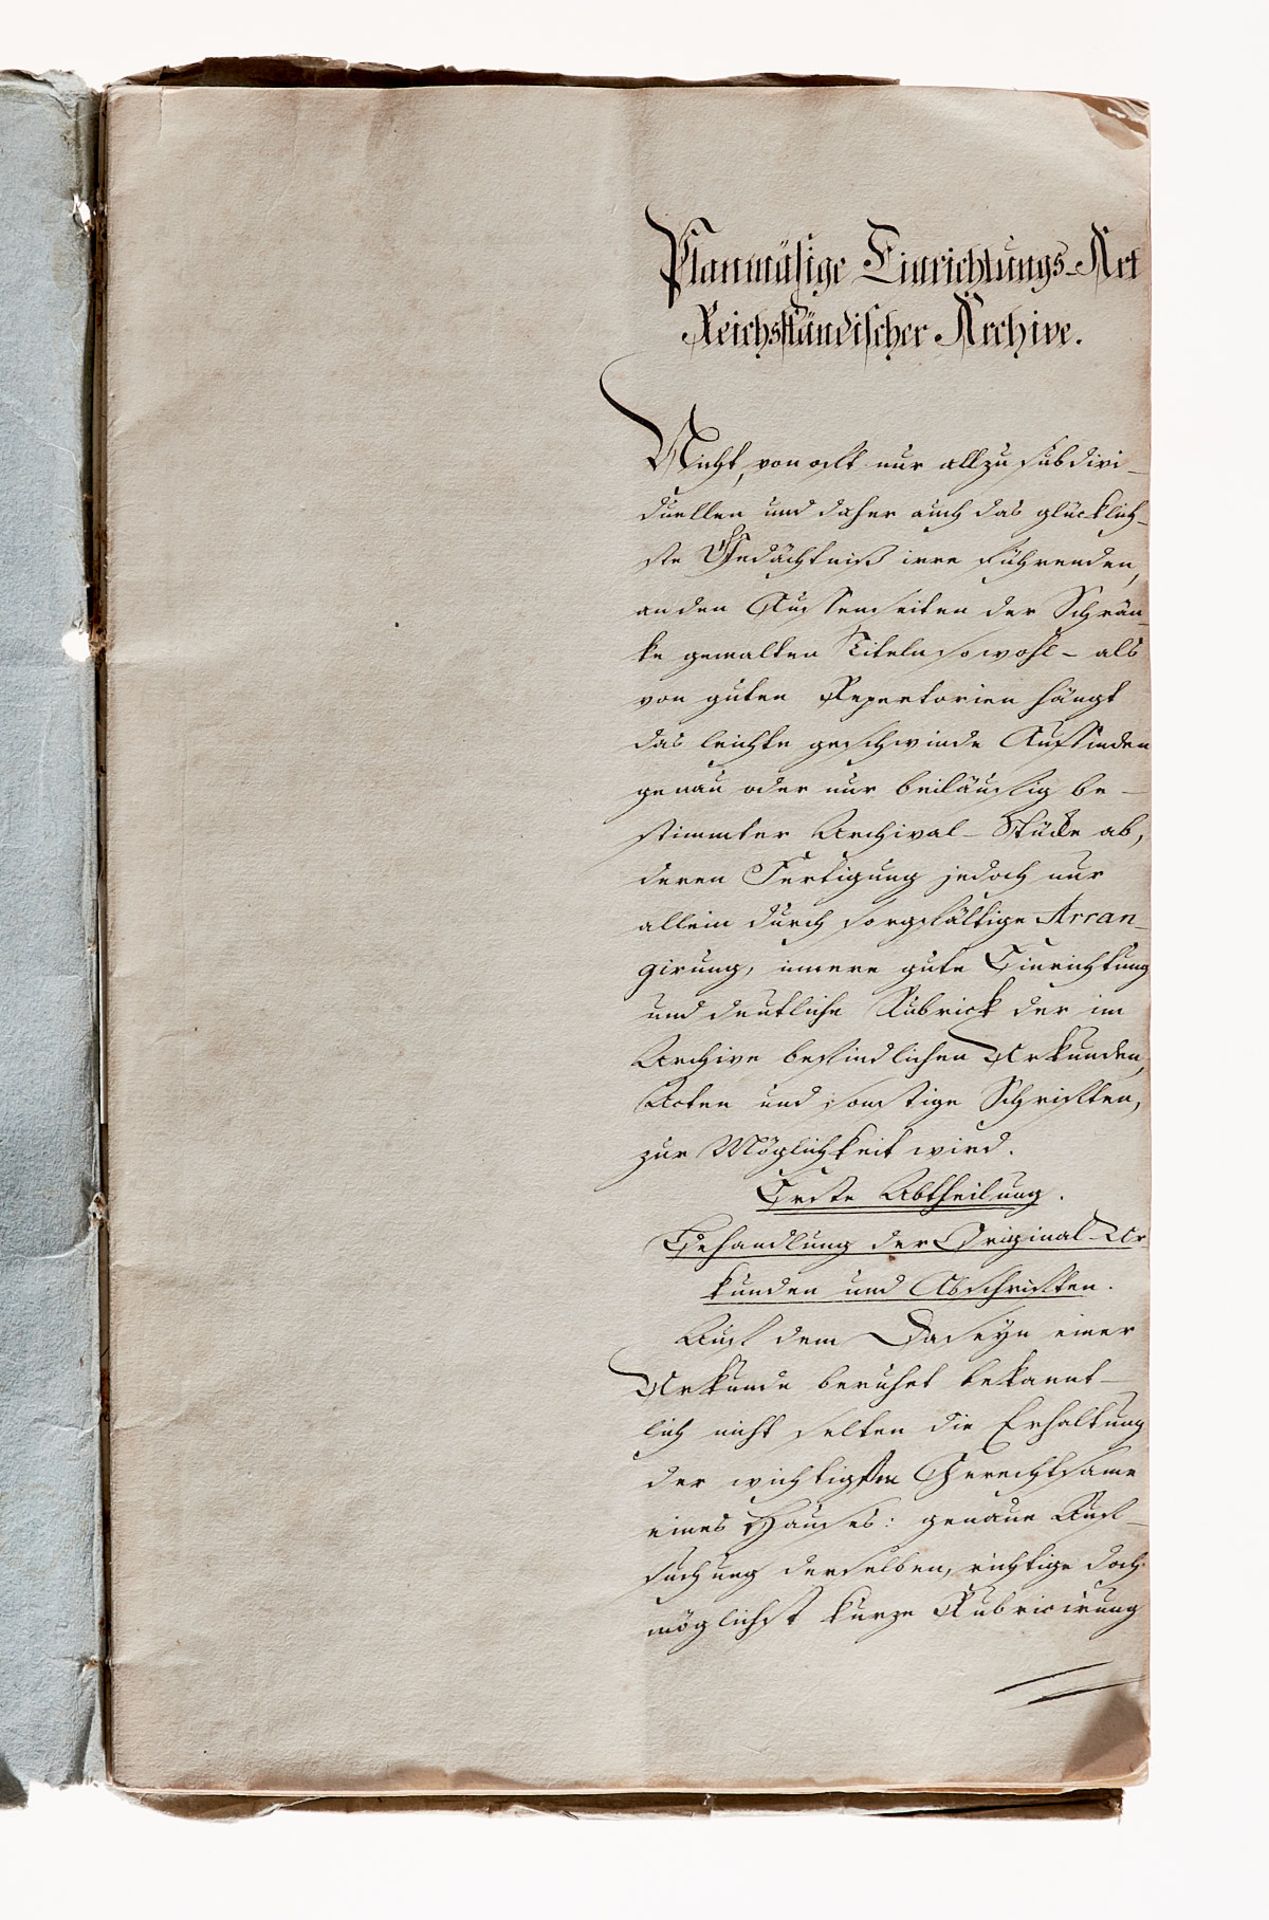 Planmäsige Einrichtungs-Art
Reichsständischer Archive.
Nicht, von oft nur allzu subdivi-
duellen und daher auch das glücklich-
ste Gedächtniß irre führenden,
an den Aussenseiten der Schrän-
ke gemalten Titeln sowohl- als
von guten Repertorien hängt
das leichte geschwinde Auffinden
genau oder nur beiläufig be-
stimmter Archival-Stücke ab,
deren Fertigung jedoch nur
allein durch sorgfältige Arran-
girung, innere gute Einrichtung
und deutliche Rubrick der im
Archive befindlichen Urkunden,
Acten und sonstige Schriften,
zur Möglichkeit wird.
Erste Abtheilung.
Behandlung der Original-Ur-
kunden und Abschriften.
Auf dem Daseyn einer
Urkunde beruhet bekannt-
lich nicht selten die Erhaltung
der wichtigsten Gerechtsame
eines Hauses: genaue Auf-
suchung derselben, richtige doch
möglichst kurze Rubricirung